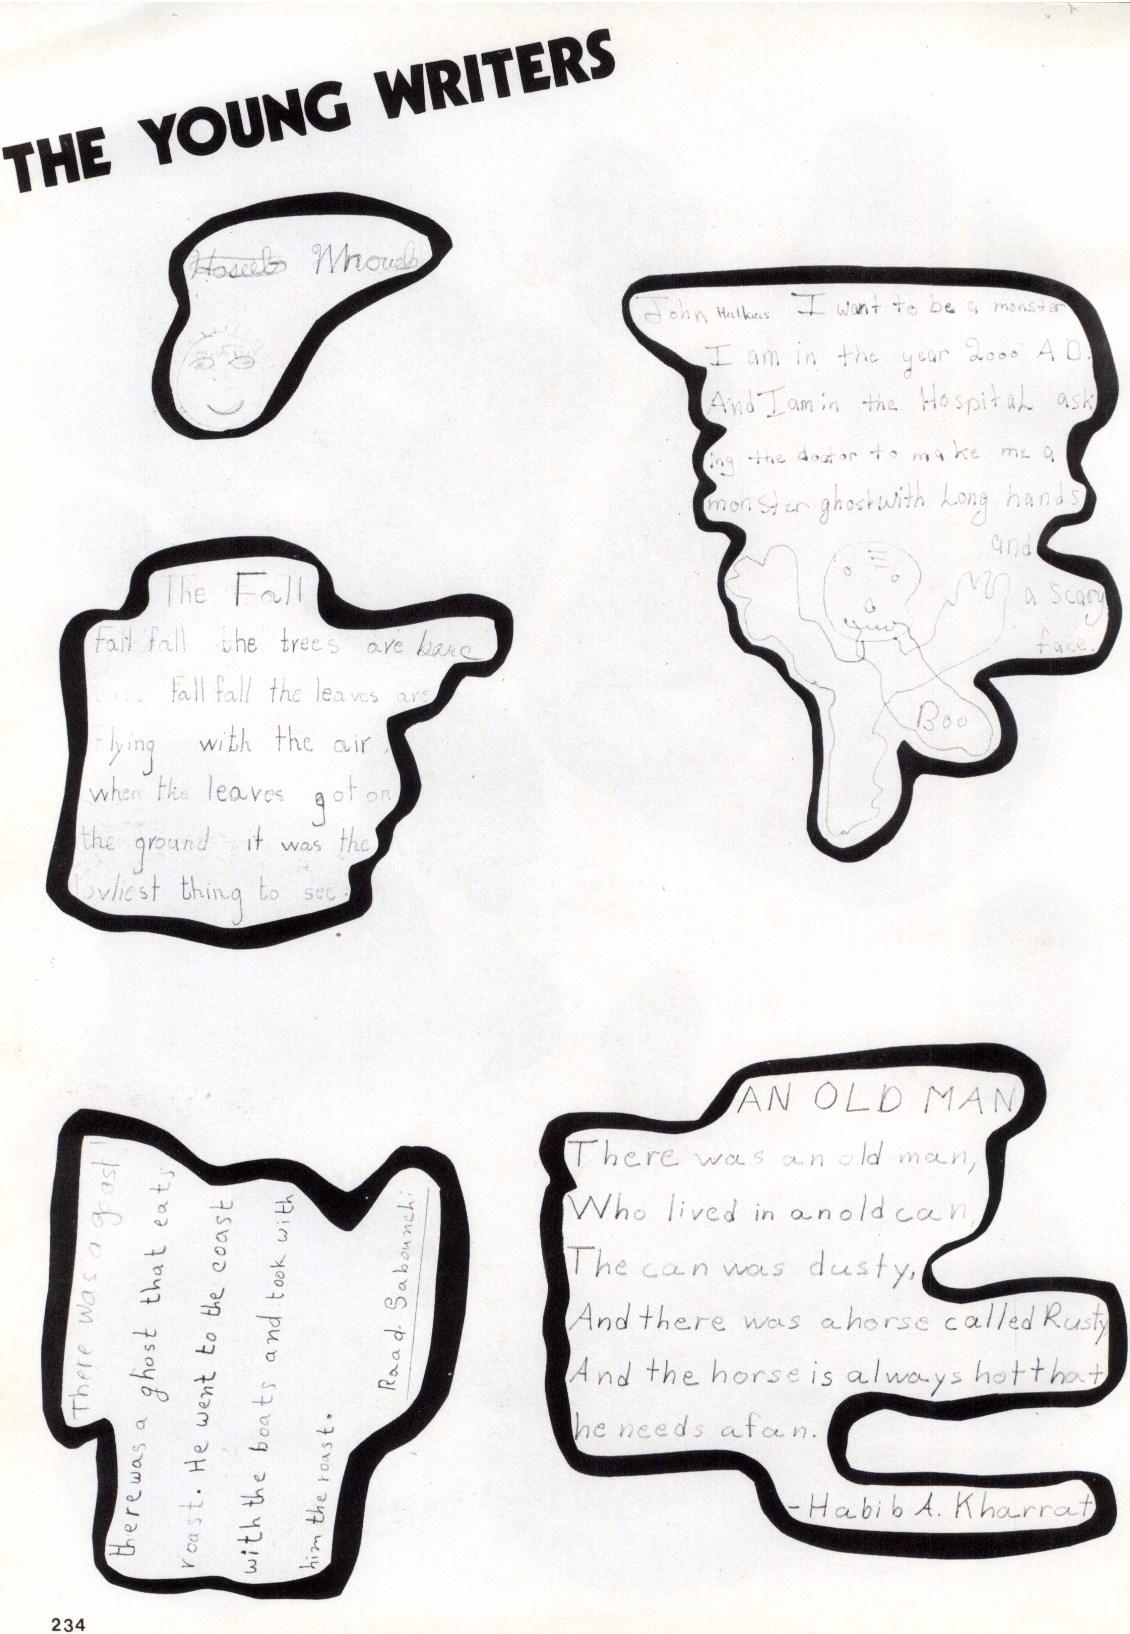 THE YOUNG WRITERS
John Halkias I want to be a monster
I am in the year 2000 A D.
And I am in the Hospital ask
ing the doctor to make me a
monster ghost with Long hands
and
a scary
face.
Boo
The Fall
Fall fall the trees are bare
fall fall the leaves are
flying with the air.
when the leaves got on
the ground it was the
lovliest thing to see.
There was a goast!
there was a ghost that eats
roast. He went to the coast
with the boats and took with
him the roast.
Raad Sabounchi
AN OLD MAN
There was an old man,
Who lived in an old can,
The can was dusty,
And there was a horse called Rusty
And the horse is always hot that
he needs a fan.
-Habib A. Kharrat
234